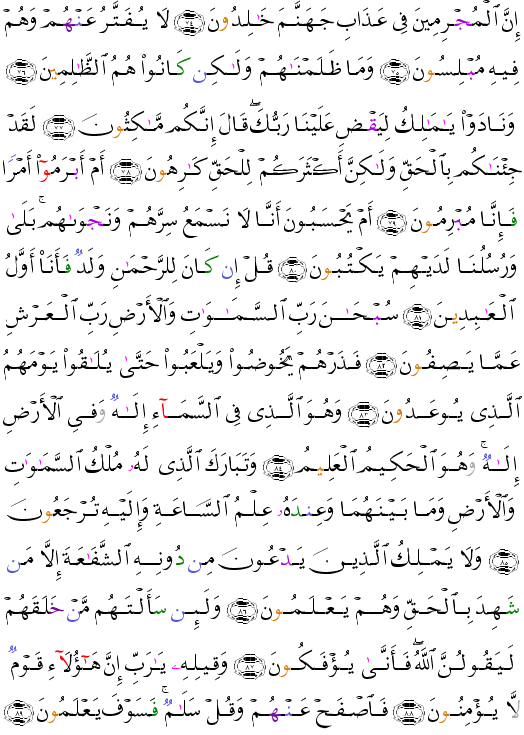 إِنَّ ٱلْمُجْرِمِينَ فِى عَذَابِ جَهَنَّمَ خَـٰلِدُونَ ﴿٧٤﴾ لَا يُفَتَّرُ عَنْهُمْ وَهُمْ
فِيهِ مُبْلِسُونَ ﴿٧٥﴾ وَمَا ظَلَمْنَـٰهُمْ وَلَـٰكِن كَانُوا۟ هُمُ ٱلظَّـٰلِمِينَ ﴿٧٦﴾
وَنَادَوْا۟ يَـٰمَـٰلِكُ لِيَقْضِ عَلَيْنَا رَبُّكَ ۖ قَالَ إِنَّكُم مَّـٰكِثُونَ ﴿٧٧﴾ لَقَدْ
جِئْنَـٰكُم بِٱلْحَقِّ وَلَـٰكِنَّ أَكْثَرَكُمْ لِلْحَقِّ كَـٰرِهُونَ ﴿٧٨﴾ أَمْ أَبْرَمُوٓا۟ أَمْرًا
فَإِنَّا مُبْرِمُونَ ﴿٧٩﴾ أَمْ يَحْسَبُونَ أَنَّا لَا نَسْمَعُ سِرَّهُمْ وَنَجْوَىٰهُم ۚ بَلَىٰ
وَرُسُلُنَا لَدَيْهِمْ يَكْتُبُونَ ﴿٨٠﴾ قُلْ إِن كَانَ لِلرَّحْمَـٰنِ وَلَدٌ فَأَنَا۠ أَوَّلُ
ٱلْعَـٰبِدِينَ ﴿٨١﴾ سُبْحَـٰنَ رَبِّ ٱلسَّمَـٰوَٰتِ وَٱلْأَرْضِ رَبِّ ٱلْعَرْشِ
عَمَّا يَصِفُونَ ﴿٨٢﴾ فَذَرْهُمْ يَخُوضُوا۟ وَيَلْعَبُوا۟ حَتَّىٰ يُلَـٰقُوا۟ يَوْمَهُمُ
ٱلَّذِى يُوعَدُونَ ﴿٨٣﴾ وَهُوَ ٱلَّذِى فِى ٱلسَّمَآءِ إِلَـٰهٌ وَفِى ٱلْأَرْضِ
إِلَـٰهٌ ۚ وَهُوَ ٱلْحَكِيمُ ٱلْعَلِيمُ ﴿٨٤﴾ وَتَبَارَكَ ٱلَّذِى لَهُۥ مُلْكُ ٱلسَّمَـٰوَٰتِ
وَٱلْأَرْضِ وَمَا بَيْنَهُمَا وَعِندَهُۥ عِلْمُ ٱلسَّاعَةِ وَإِلَيْهِ تُرْجَعُونَ
﴿٨٥﴾ وَلَا يَمْلِكُ ٱلَّذِينَ يَدْعُونَ مِن دُونِهِ ٱلشَّفَـٰعَةَ إِلَّا مَن
شَهِدَ بِٱلْحَقِّ وَهُمْ يَعْلَمُونَ ﴿٨٦﴾ وَلَئِن سَأَلْتَهُم مَّنْ خَلَقَهُمْ
لَيَقُولُنَّ ٱللَّهُ ۖ فَأَنَّىٰ يُؤْفَكُونَ ﴿٨٧﴾ وَقِيلِهِۦ يَـٰرَبِّ إِنَّ هَـٰٓؤُلَآءِ قَوْمٌ
لَّا يُؤْمِنُونَ ﴿٨٨﴾ فَٱصْفَحْ عَنْهُمْ وَقُلْ سَلَـٰمٌ ۚ فَسَوْفَ يَعْلَمُونَ ﴿٨٩﴾